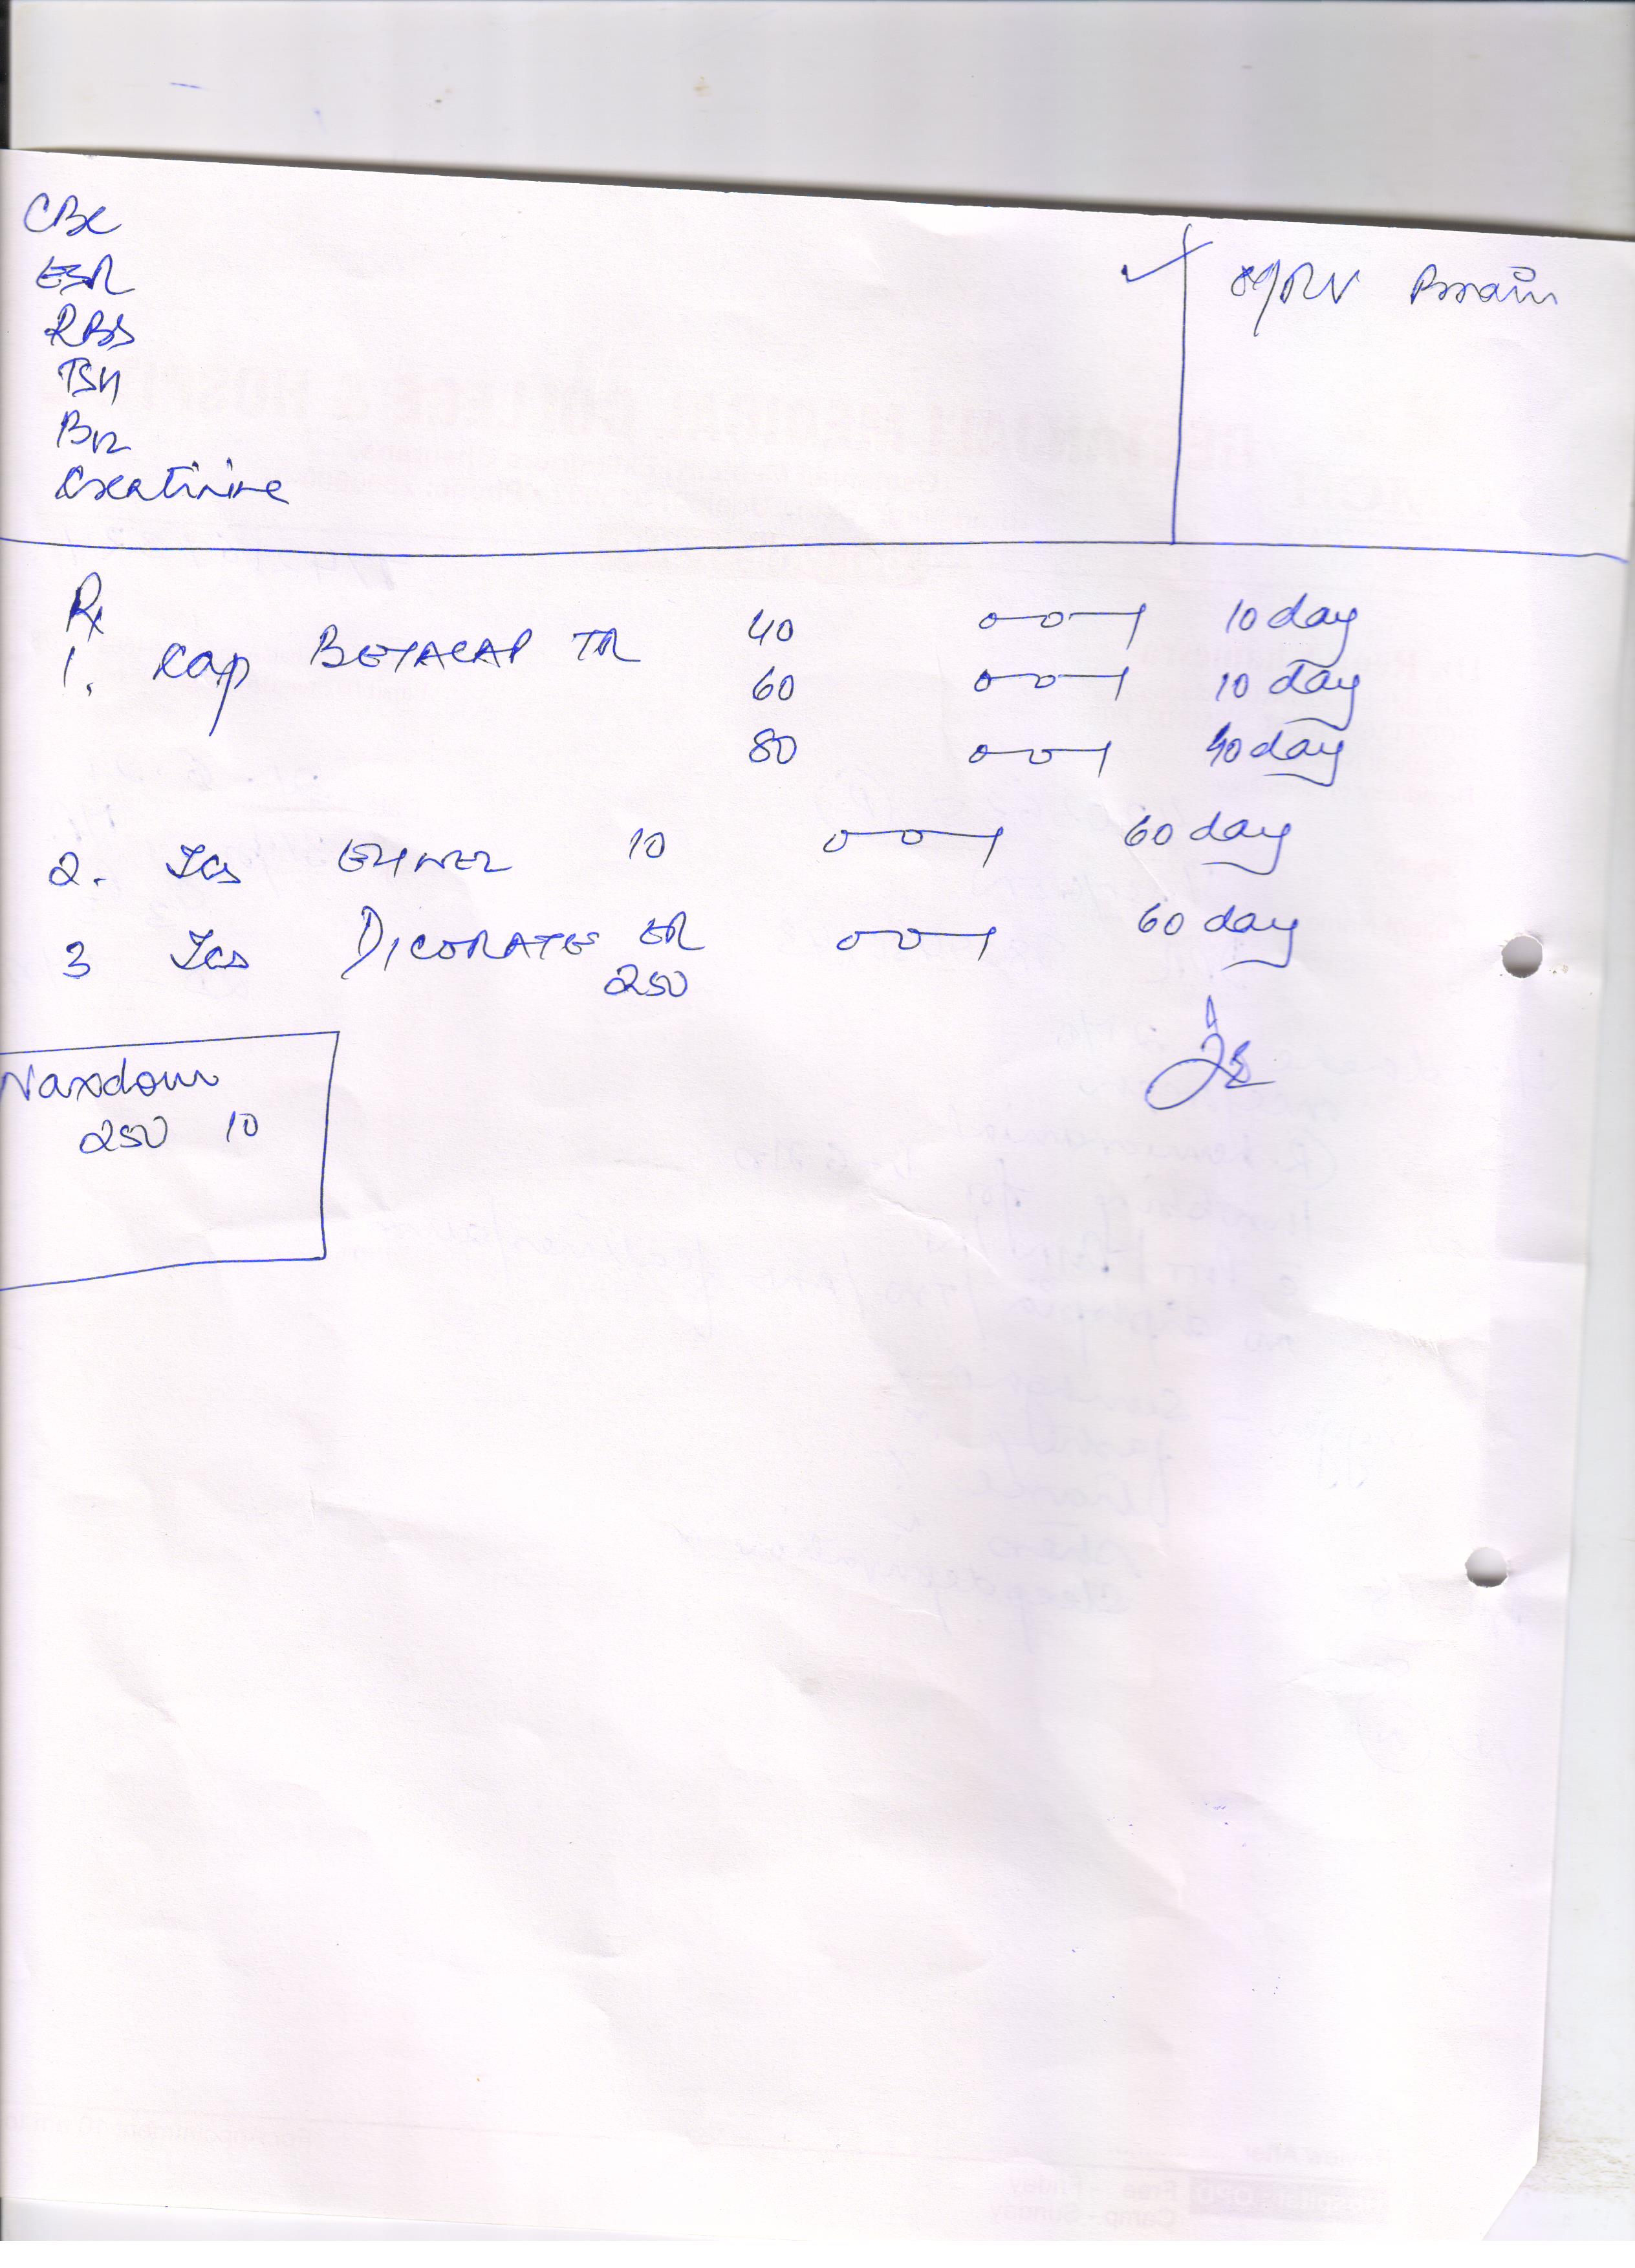 CBC
ESR
RBS
TSH
B12
Creatinine
Brain
Rx
1. Cap BETACAP TR 40 0-0-1 10 day
60 0-0-1 10 day
80 0-0-1 40 day
2. Tab 10 0-0-1 60 day
3 Tab DICORATE ER 0-0-1 60 day
250
Naxdom
250 10